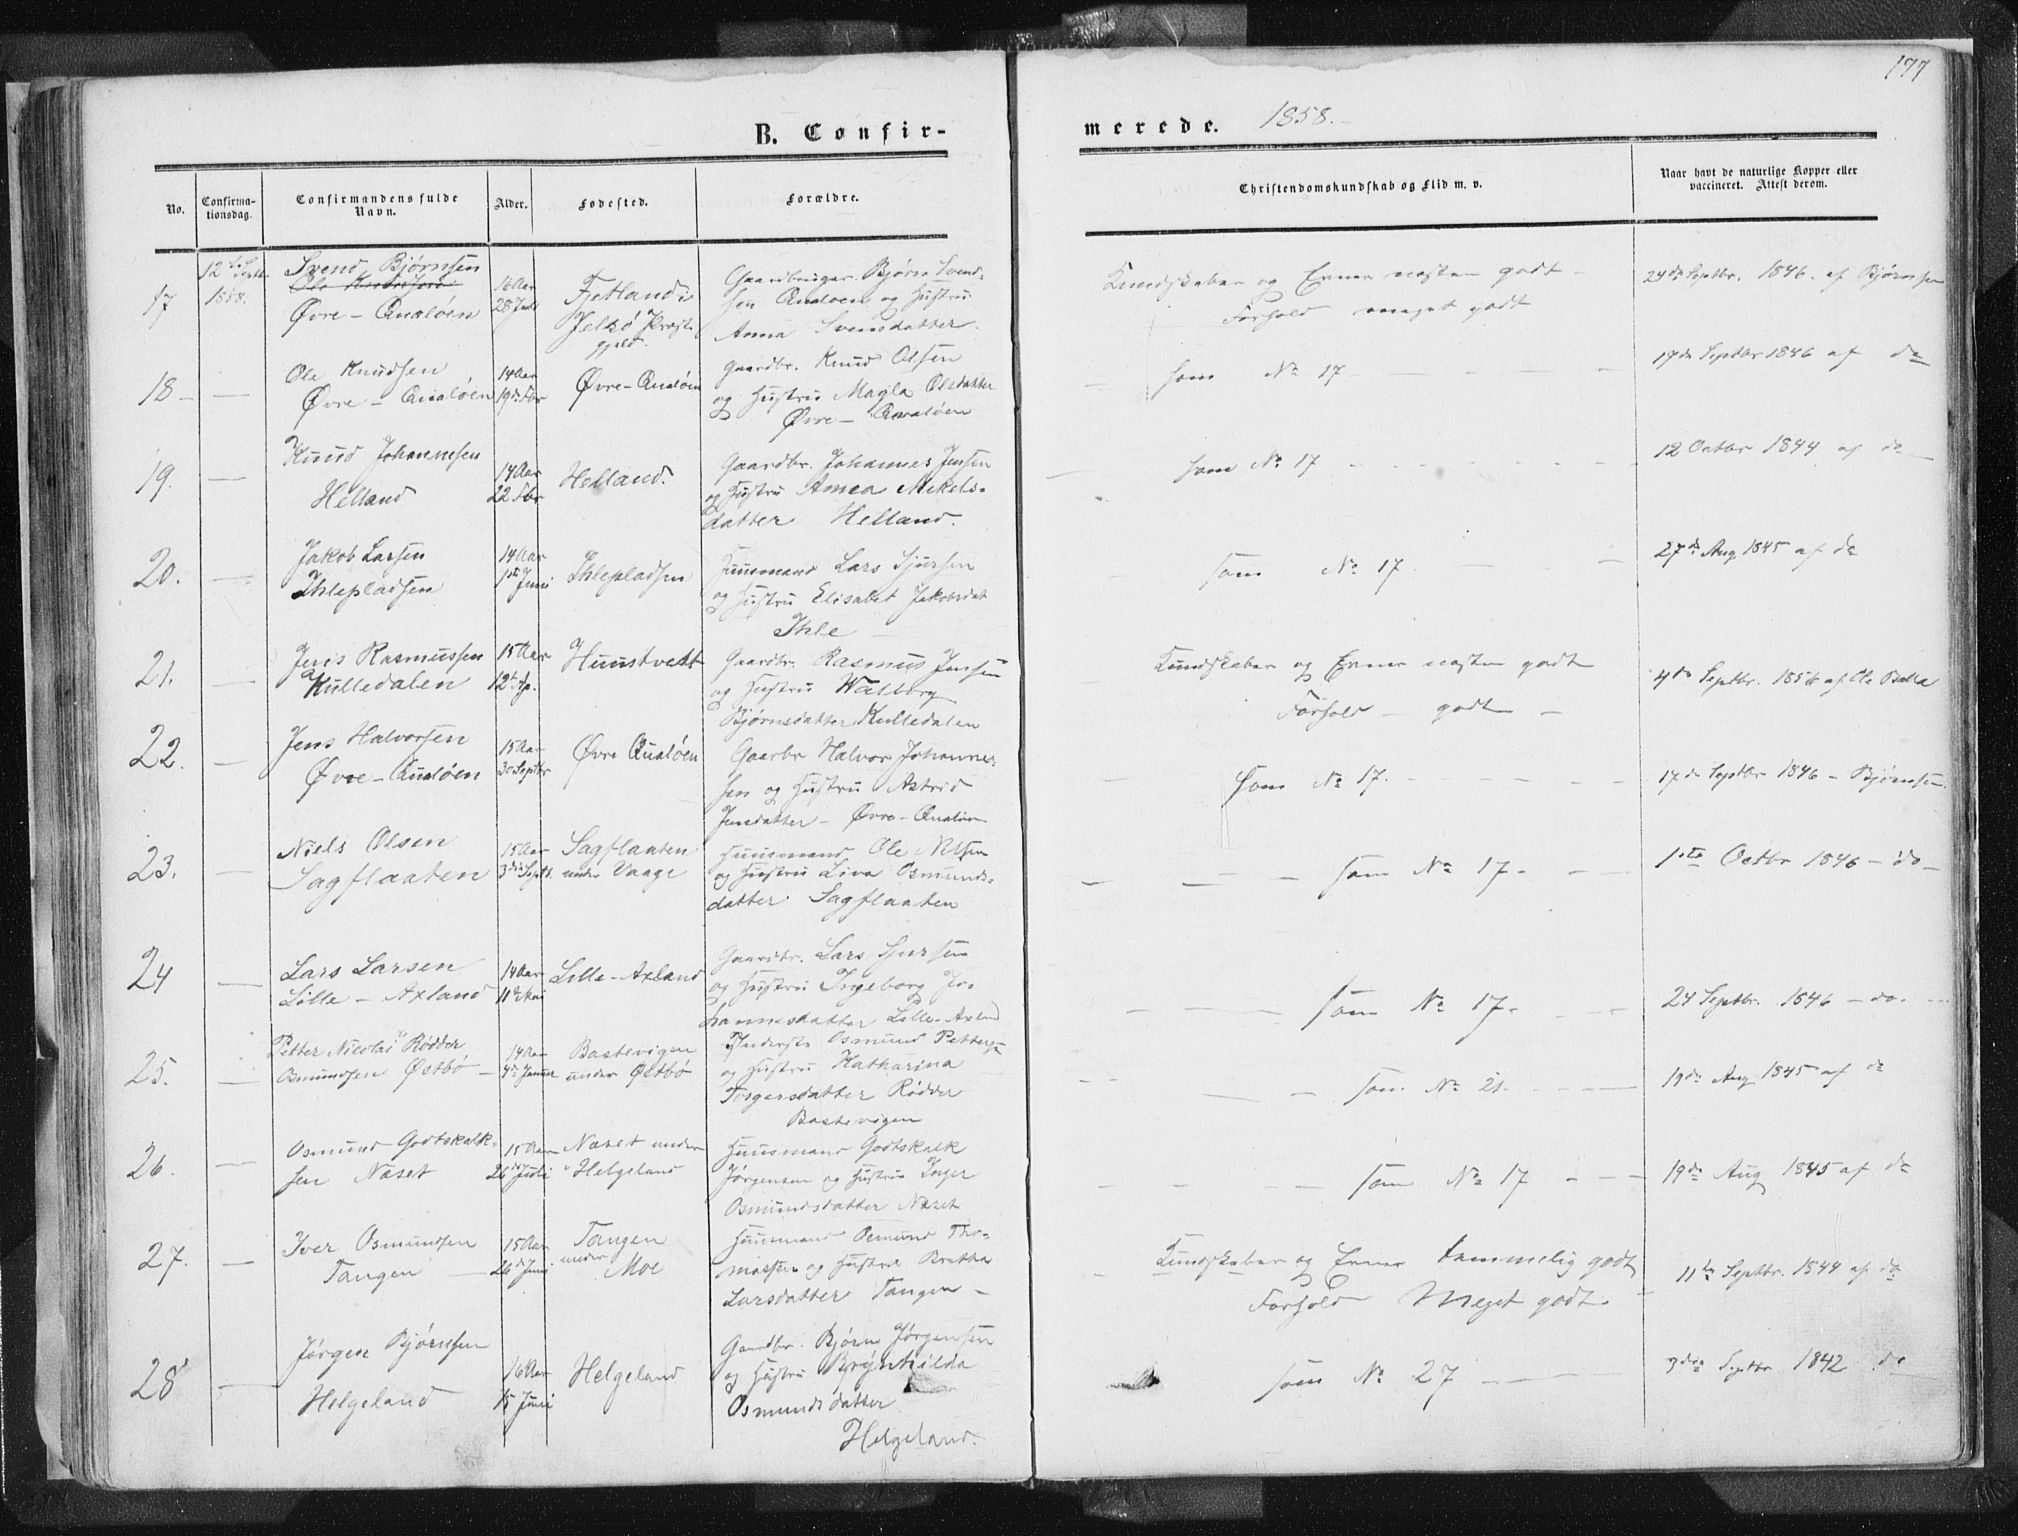 177
B. Confirmerede. 1858.
No.
Confirmationsdag.
Confirmandens fulde Navn.
Alder.
Fødested.
Forældre.
Christendomskundskab og Flid m. v.
Naar havt de naturlige Kopper eller vaccineret. Attest derom.
17
12te Septbr.
1858.
Svend Bjørnsen
Øvre-Qualøen
16 Aar
28 Juli
Fjetland i
Jelsø Præste
gjeld.
Gaardbruger Bjørn Svend-
sen Qualøen og Hustru
Anna Svensdatter
Kundskaber og Evner næsten godt
Forhold meget godt
24de Septbr. 1846. af Bjørnsen
18
Ole Knudsen
Øvre-Qualøen
14 Aar
19de Fbr
Øvre-Qualøen
Gaardbr. Knud Olsen
og Hustru Magla Olsdatter
Øvre-Qualøen
som No 17
17de Septbr 1846 af do
19.
Knud Johannesen
Helland
14 Aar
22 Fbr
Helland.
Gaardbr. Johannes Jensen
og Hustru Amea Mikels-
datter Helland.
som No 17
12 Octbr 1844 af do
20.
Jakob Larsen
Ihlepladsen
14 Aar
1ste Juni
Ihlepladsen
Huusmand Lars Sjursen
og Hustru Elisabet Jakobsdat
Ihle
som No 17
27de Aug 1845 af do
21.
Jens Rasmussen
Kulledalen
15 Aar
12te Ap.
Huustvett
Gaardbr. Rasmus Jensen
og Hustru Walborg
Bjørnsdatter Kulledalen
Kundskaber og Evner næsten godt
Forhold godt
4de Septbr. 1856 af Ole Bella
22.
Jens Halvorsen
Øvre-Qualøen
15 Aar
30 Septbr
Øvre Qualøen
Gaarbr Halvor Johannes-
sen og Hustru Astrid
Jensdatter - Øvre-Qualøen
Som No 17.
17de Septbr 1846 - Bjørnsen
23.
Niels Olsen
Sagflaaten
15 Aar
3die Septb.
Sagflaaten
under Vaage
Huusmand Ole Nilsen
og Hustru Liva Osmunds-
datter Sagflaaten
som No 17.
1ste Octbr 1846 - do
24
Lars Larsen
Lille-Axland
14 Aar
11te Mai
Lille-Axland
Gaardbr. Lars Sjursen
og Hustru Ingeborg Jo-
hannesdatter Lille-Axland
som No 17.
24 Septbr. 1846 - do.
25.
Petter Nicolai Rødder
Osmundsen Østbø
14 Aar
4de Januar
Bastevigen
under Østbø
Inderste Osmund Petters
og Hustru Katharina
Torgersdatter Rødder
Bastevigen
som No 21.
19de Aug 1845 af do
26.
Osmund Godtskalk-
sen Næset
15 Aar
26de Juli
Næset under
Helgeland
Huusmand Godtskalk
Jørgensen og Hustru Inger
Osmundsdatter Næset
som No 17
19de Aug 1845 af do
27.
Iver Osmundsen
Tangen
15 Aar
26de Juni
Tangen
under
Moe
Huusmand Osmund Tho-
massen og Hustru Bretha
Larsdatter Tangen
Kundskaber og Evner temmelig godt
Forhold Meget godt
11te Septbr. 1844 af do
28
Jørgen Bjørnsen
Helgeland
16 Aar
15 Juni
Helgeland
Gaardbr. Bjørn Jørgensen
og Hustru Brynhilda
Osmundsdatter
Helgeland.
som No 27
3die Septbr 1842 do